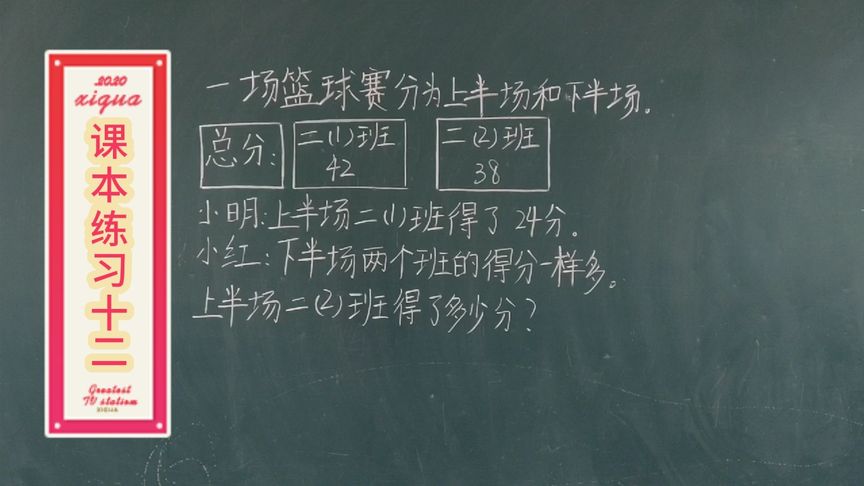 2020
xigua
课本练习十二
Greatest
TV station
XIGUA
一场篮球赛分为上半场和下半场。
总分: 二(1)班 二(2)班
42 38
小明:上半场二(1)班得了24分。
小红:下半场两个班的得分一样多。
上半场二(2)班得了多少分?